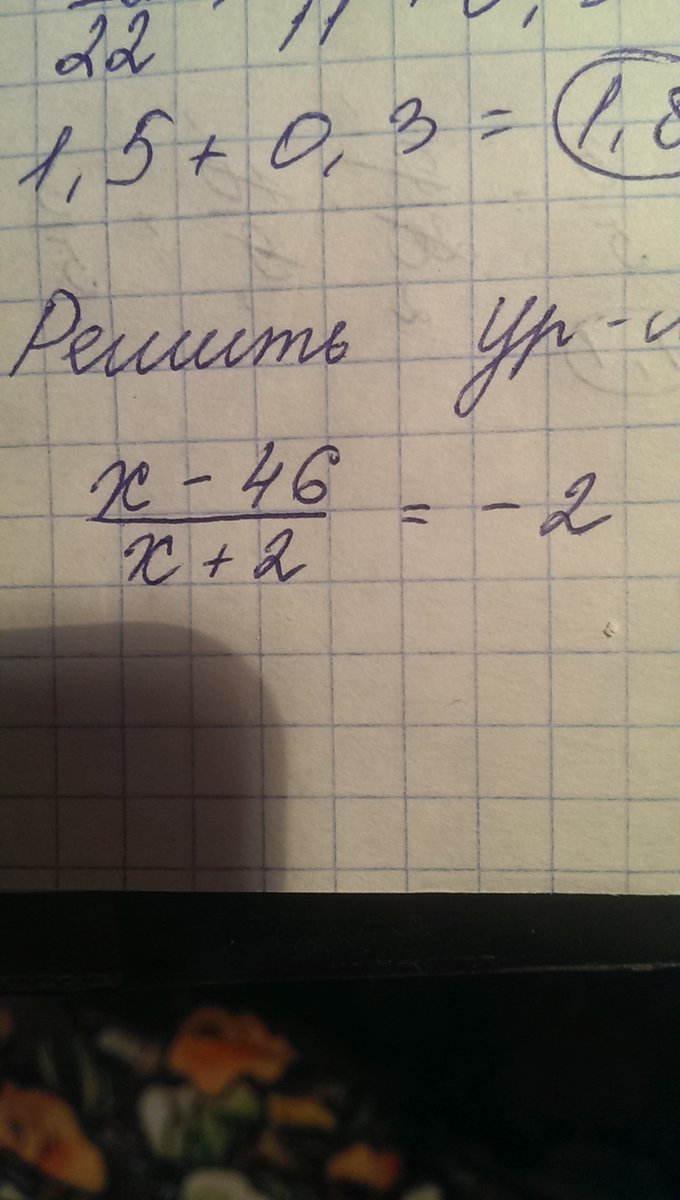 22 11
1,5 + 0,3 = 1,8
Решить ур-
x - 46
x + 2 = - 2